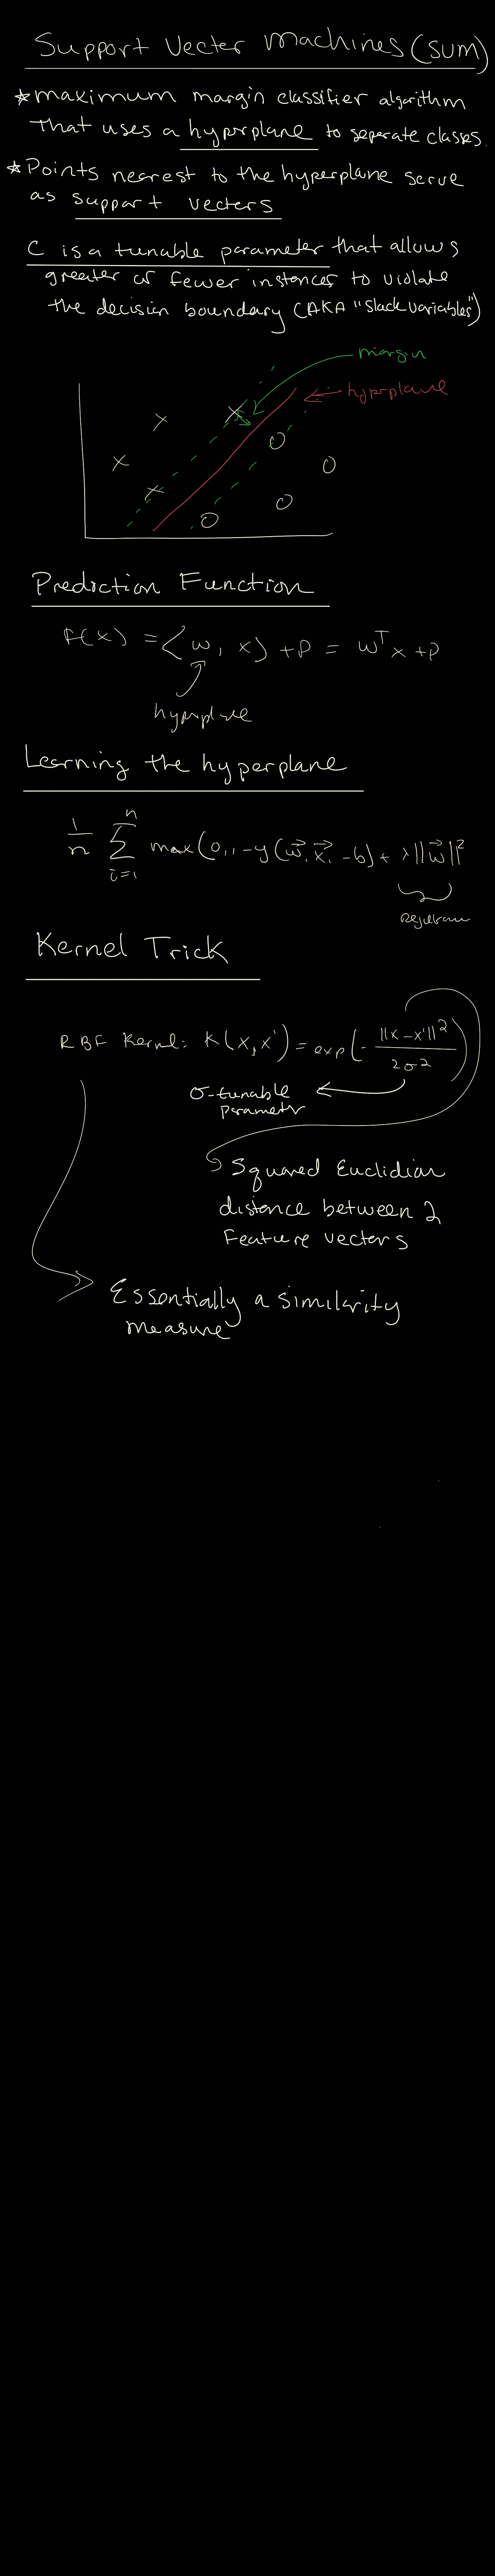 Support Vector Machines (SVM)
* maximum margin classifier algorithm
that uses a hyperplane to separate classes.
* Points nearest to the hyperplane serve
as support vectors
C is a tunable parameter that allows
greater or fewer instances to violate
the decision boundary (AKA "slack variables")
margin
hyperplane
Prediction Function
f(x) = ⟨w, x⟩ + ρ = wᵀx + ρ
hyperplane
Learning the hyperplane
1/n Σ i=1 n max(0, 1 - y(w⃗ · x⃗ - b)) + λ||w⃗||²
Kernel Trick
RBF Kernel: K(x, x') = exp(- ||x - x'||² / 2σ²)
σ - tunable
parameter
Squared Euclidian
distance between 2
feature vectors
Essentially a similarity
measure